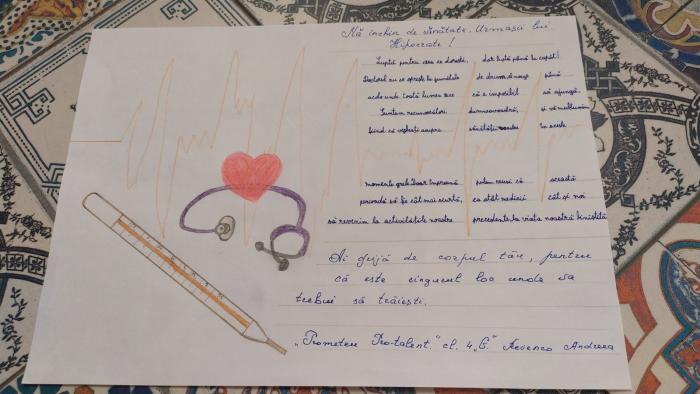 Mă închin de sănătate. Urmașii lui
Hipocrate!
Luptă pentru ceea ce dorești, dar luptă până la capăt!
Doctorul nu se oprește la jumătate de drum, merge până
acolo unde toată lumea zice că e imposibil să ajungă.
Suntem recunoscători dumneavoastră, și vă mulțumim
fiind că vegheați asupra sănătății noastre în aceste
momente grele. Doar împreună putem reuși ca această
perioadă să fie cât mai scurtă, ca atât medicii cât și noi
să revenim la activitățile noastre precedente, la viața noastră liniștită
Ai grijă de corpul tău, pentru
că este singurul loc unde va
trebui să trăiești.
„Prometeu Pro-talent." cl. 4 „G." Revenco Andreea